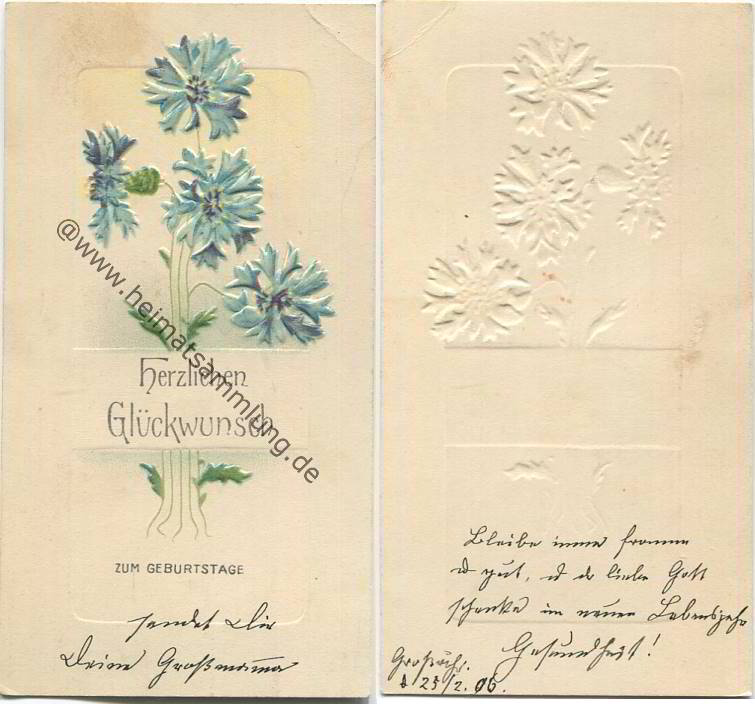 Herzlichen
Glückwunsch
ZUM GEBURTSTAGE
sendet Dir
Deine Großmama
@www.heimatsammlung.de
Bleibe immer fromm
u gut, u der liebe Gott
schenke im neuen Lebensjahr
Gesundheit!
25/2. 06.